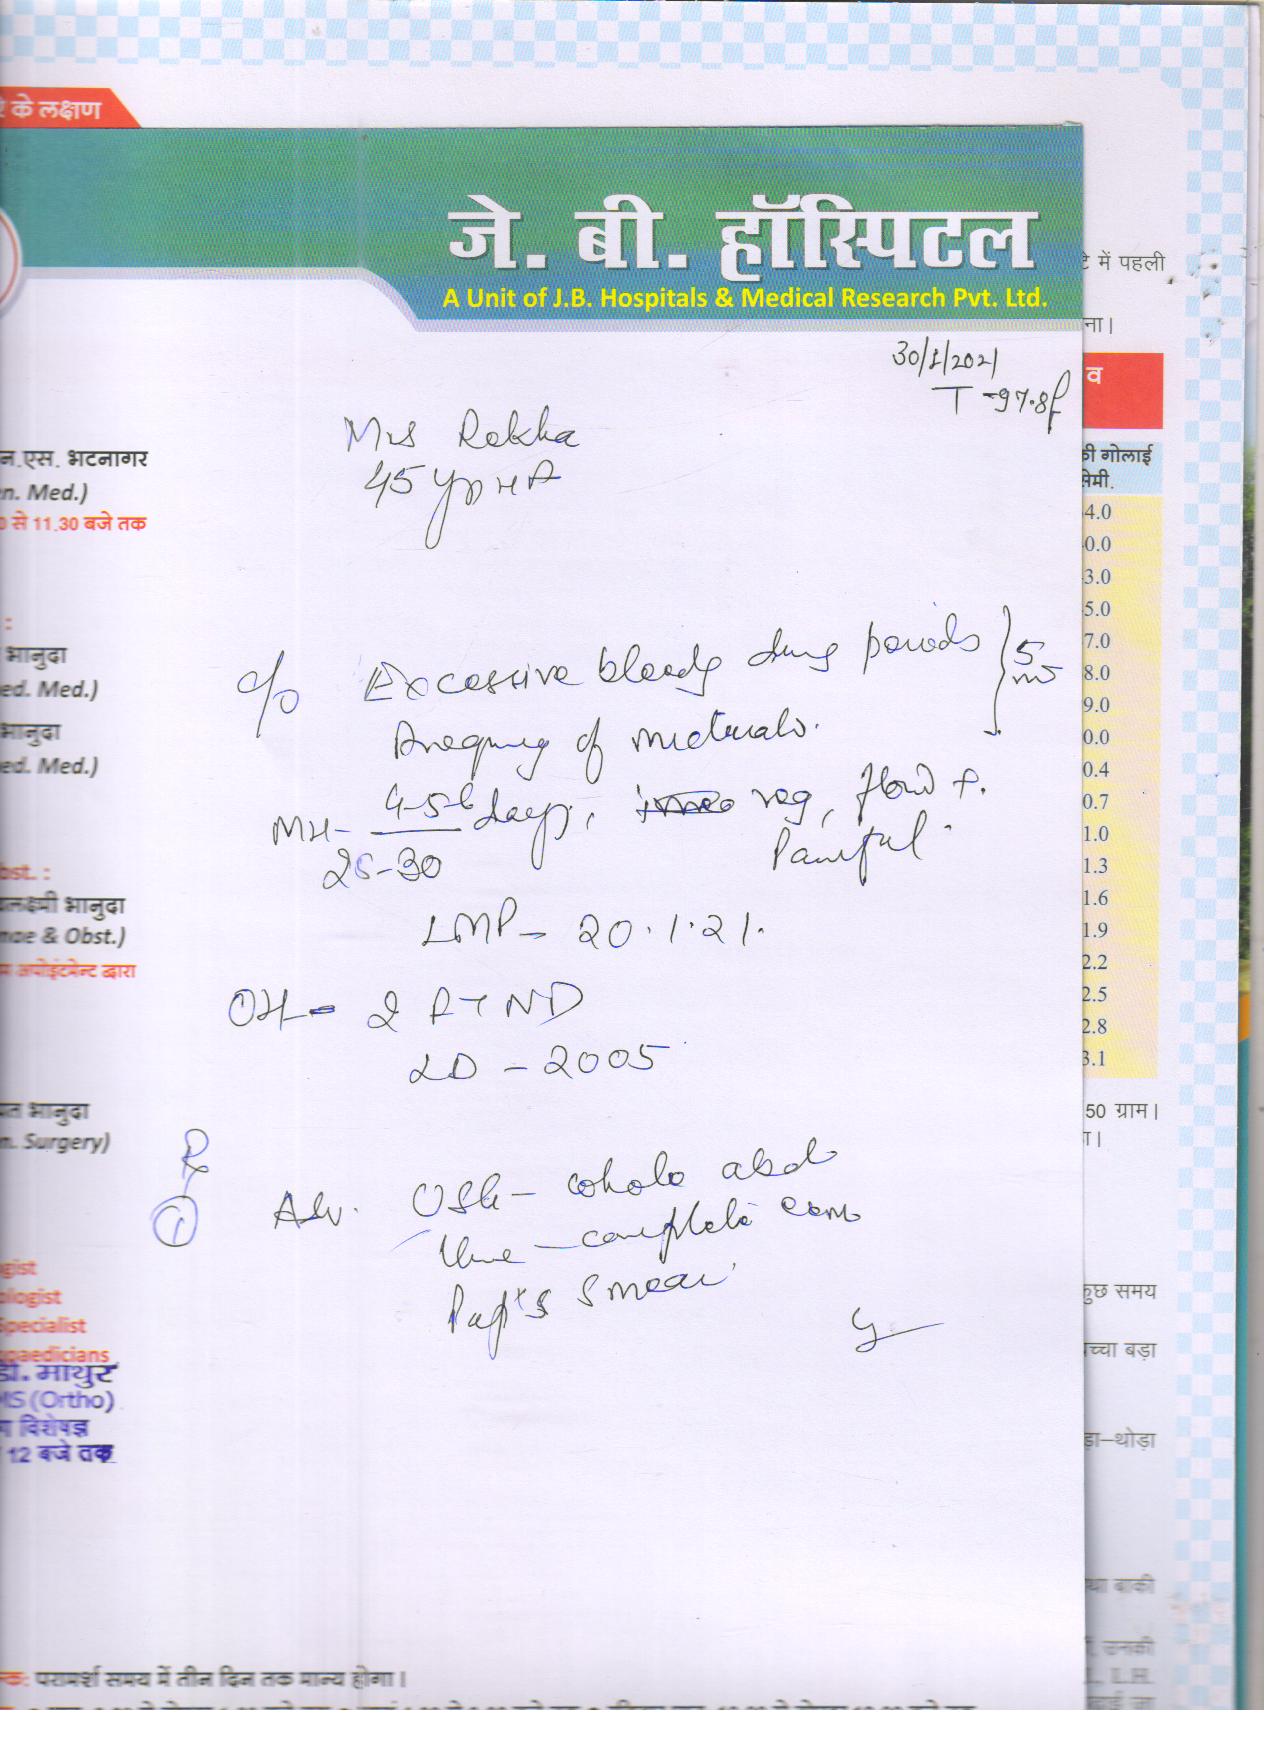 रे के लक्षण
जे. बी. हॉस्पिटल
A Unit of J.B. Hospitals & Medical Research Pvt. Ltd.
टे में पहली
ना।
30/1/2021
T - 97.8f
व
Mrs Rekha
45 yrs
न.एस. भटनागर
की गोलाई
सेमी.
en. Med.)
0 से 11.30 बजे तक
4.0
0.0
3.0
5.0
7.0
8.0
9.0
0.0
0.4
0.7
1.0
1.3
1.6
1.9
2.2
2.5
2.8
3.1
:
भानुदा
ed. Med.)
भानुदा
ed. Med.)
c/o Excessive bleedg durng periods } 5
of
MH- 4-5-6 days, reg, flow
25-30 Painful.
LMP - 20.1.21.
bst. :
यलक्ष्मी भानुदा
nae & Obst.)
अपोइंटमेन्ट द्वारा
OH - 2 FTND
LD - 2005
भानुदा
n. Surgery)
50 ग्राम।
ा।
Rx
1 Adv. USG - whole abd
Urine - complete exm
Pap's smear
gist
ologist
Specialist
opaedicians
डी. माथुर
MS (Ortho)
विशेषज्ञ
12 बजे तक
कुछ समय
च्चा बड़ा
ड़ा–थोड़ा
था बाकी
उनकी
I.H.
क: परामर्श समय में तीन दिन तक मान्य होगा।